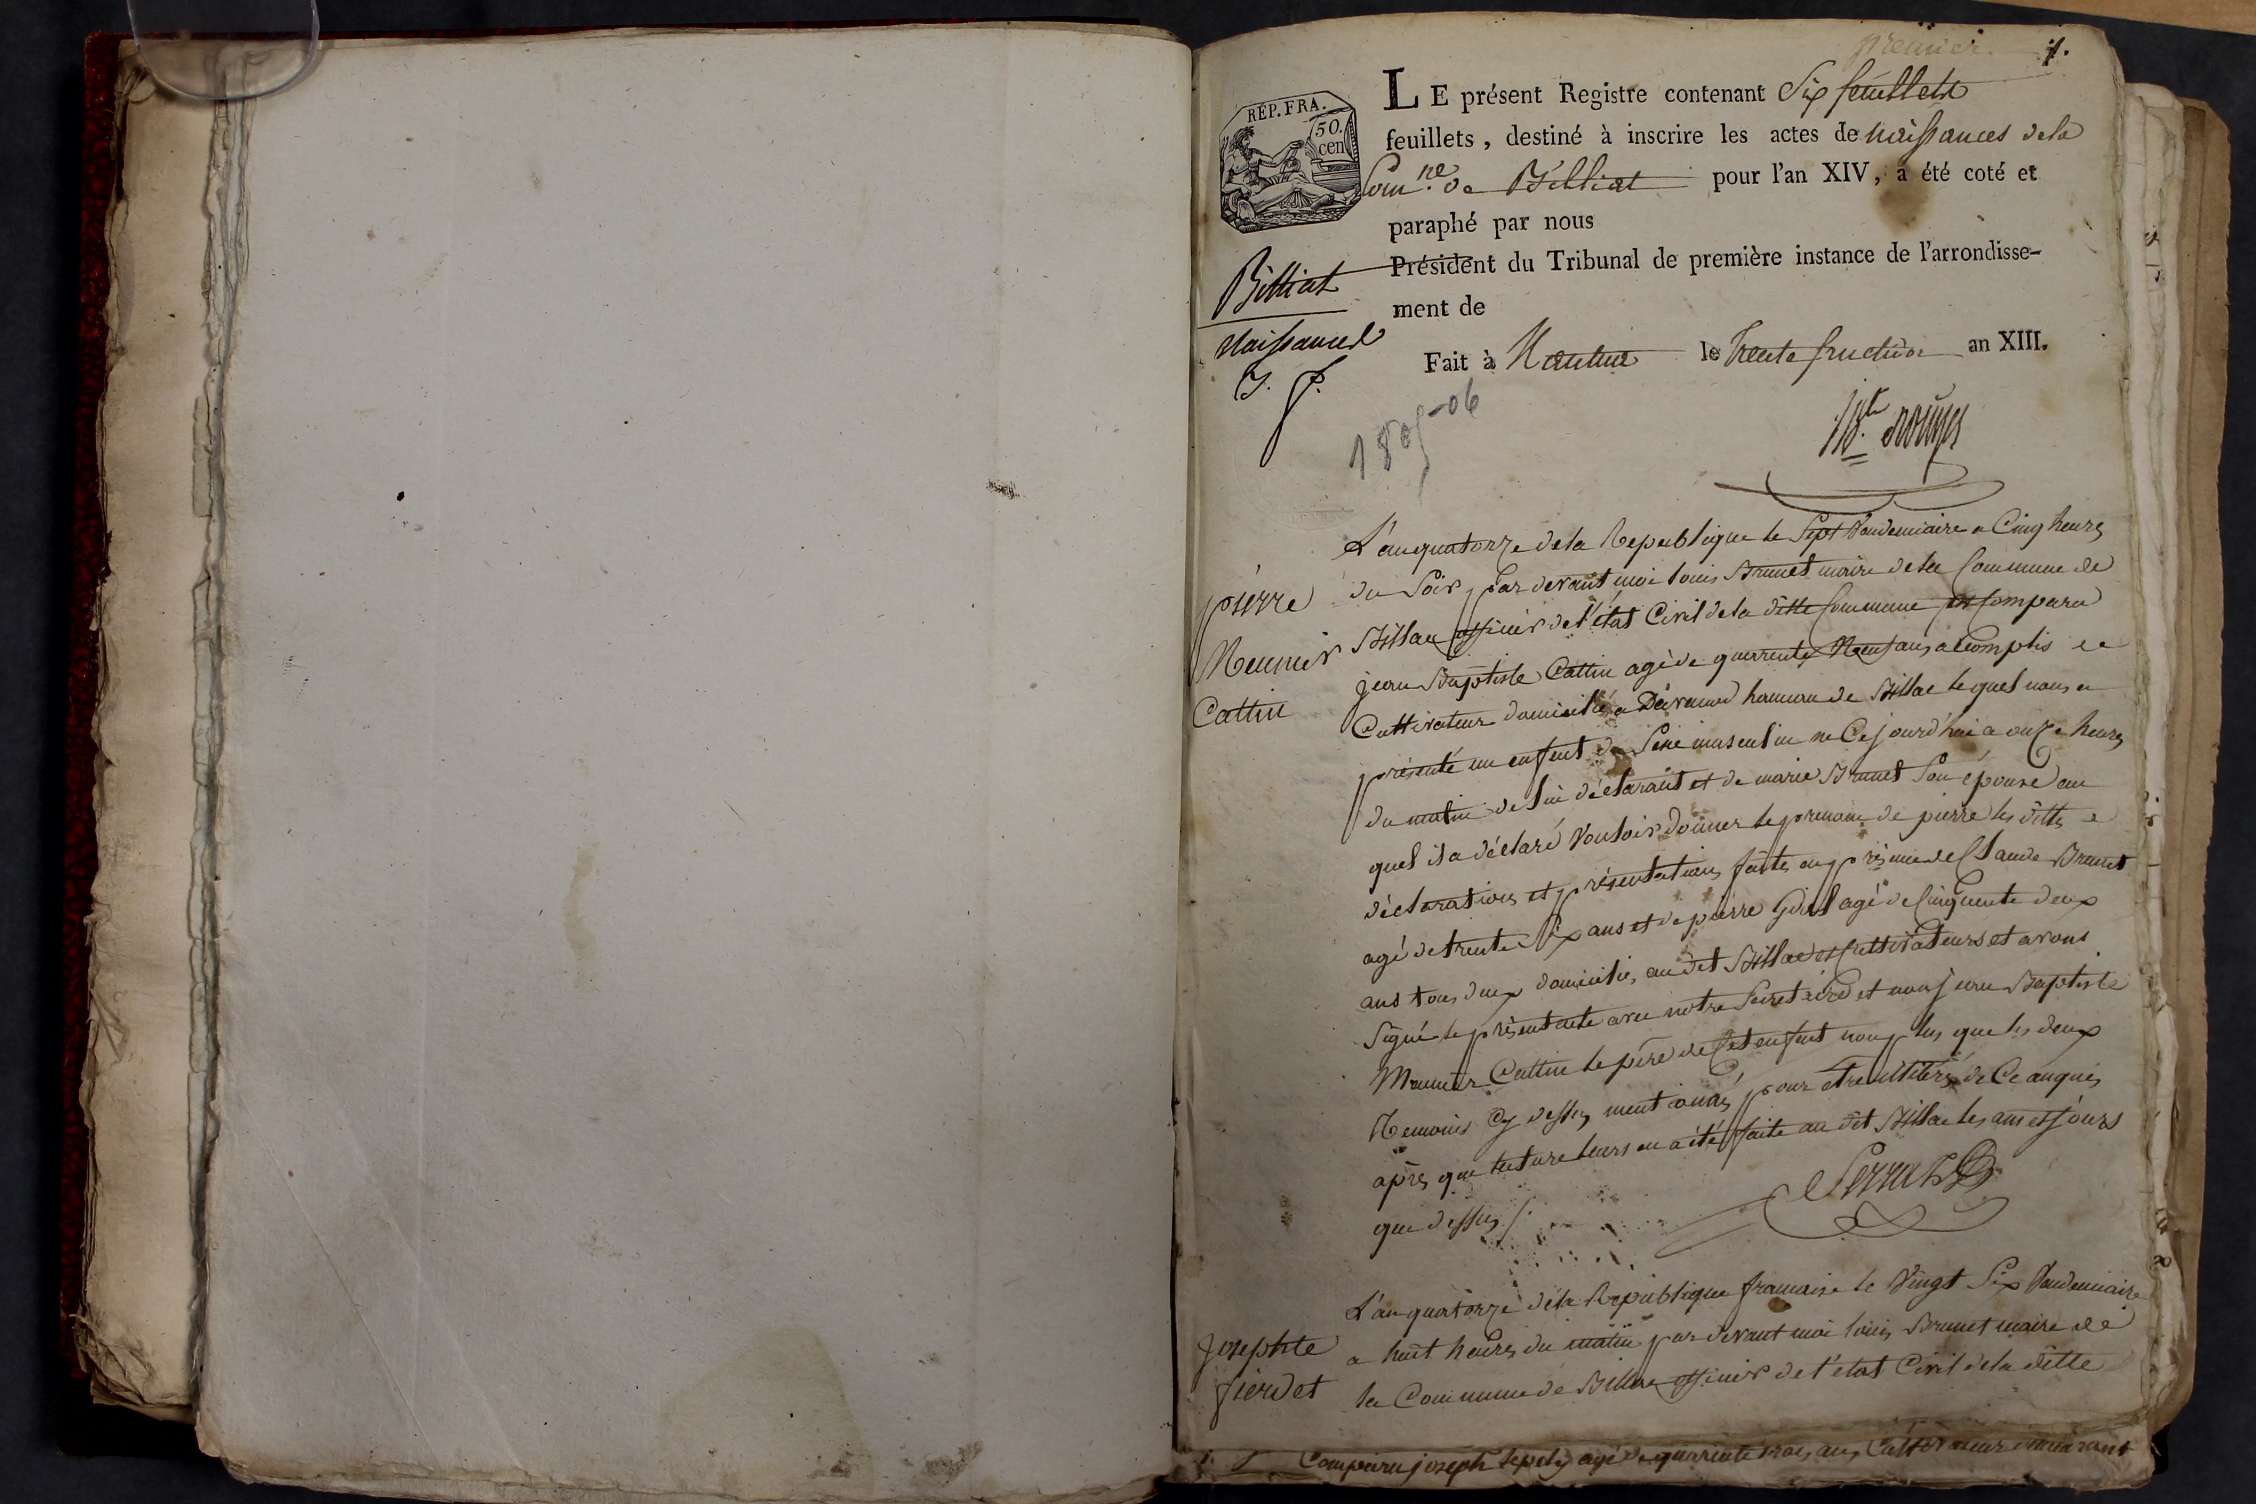 premier 1.
RÉP. FRA.
50.
cen
LE présent Registre contenant Six feuillets
feuillets, destiné à inscrire les actes de naissances de la
Comne. de Billiat pour l'an XIV, a été coté et
paraphé par nous
Président du Tribunal de première instance de l'arrondisse-
ment de
Billiat
naissances
Fait à Nantua le trente fructidor an XIII.
1805-06
pierre
Meunier
Cattin
L'an quatorze de la Republique le Sept Vandemiaire a Cinq heures
du Soir par devant moi louis Brunet maire de la Commune de
Billac officier de l'état Civil de la ditte Commune est Comparu
jean Baptiste Cattin agé de quarrente Neuf ans acomplis
Cultivateur domicilié a hameau de Billac le quel nous a
présenté un enfent de Sexe masculin ne Ce jourd'hui a onze heures
du matin de lui déclarant et de marie Brunet Son épouse au
quel il a déclaré Vouloir donner le prenom de pierre les dittes
déclarations et présentations faites en présence de Claude Brunet
agé de trente Six ans et de pierre agé de Cinquente deux
ans tous deux domicilies au dit Billac et Cultivateurs et avons
Signé le présent acte avec notre Secretaire et non jean Baptiste
Meunier Cattin le père de Cet enfent non plus que les deux
Temoins Cy dessus mentionnés pour etre illiterés de Ce anquis
après que lecture leurs en a été faite au dit Billac les an et jours
que dessus /.
josephte
fierdet
L'an quatorze de la Republique francaise le Vingt Six Vandemiaire
a huit heures du matin par devant moi louis Brunet maire de
la Commune de Billac officier de l'etat Civil de la ditte
Comparu joseph agé de quarrente trois ans Cultivateur